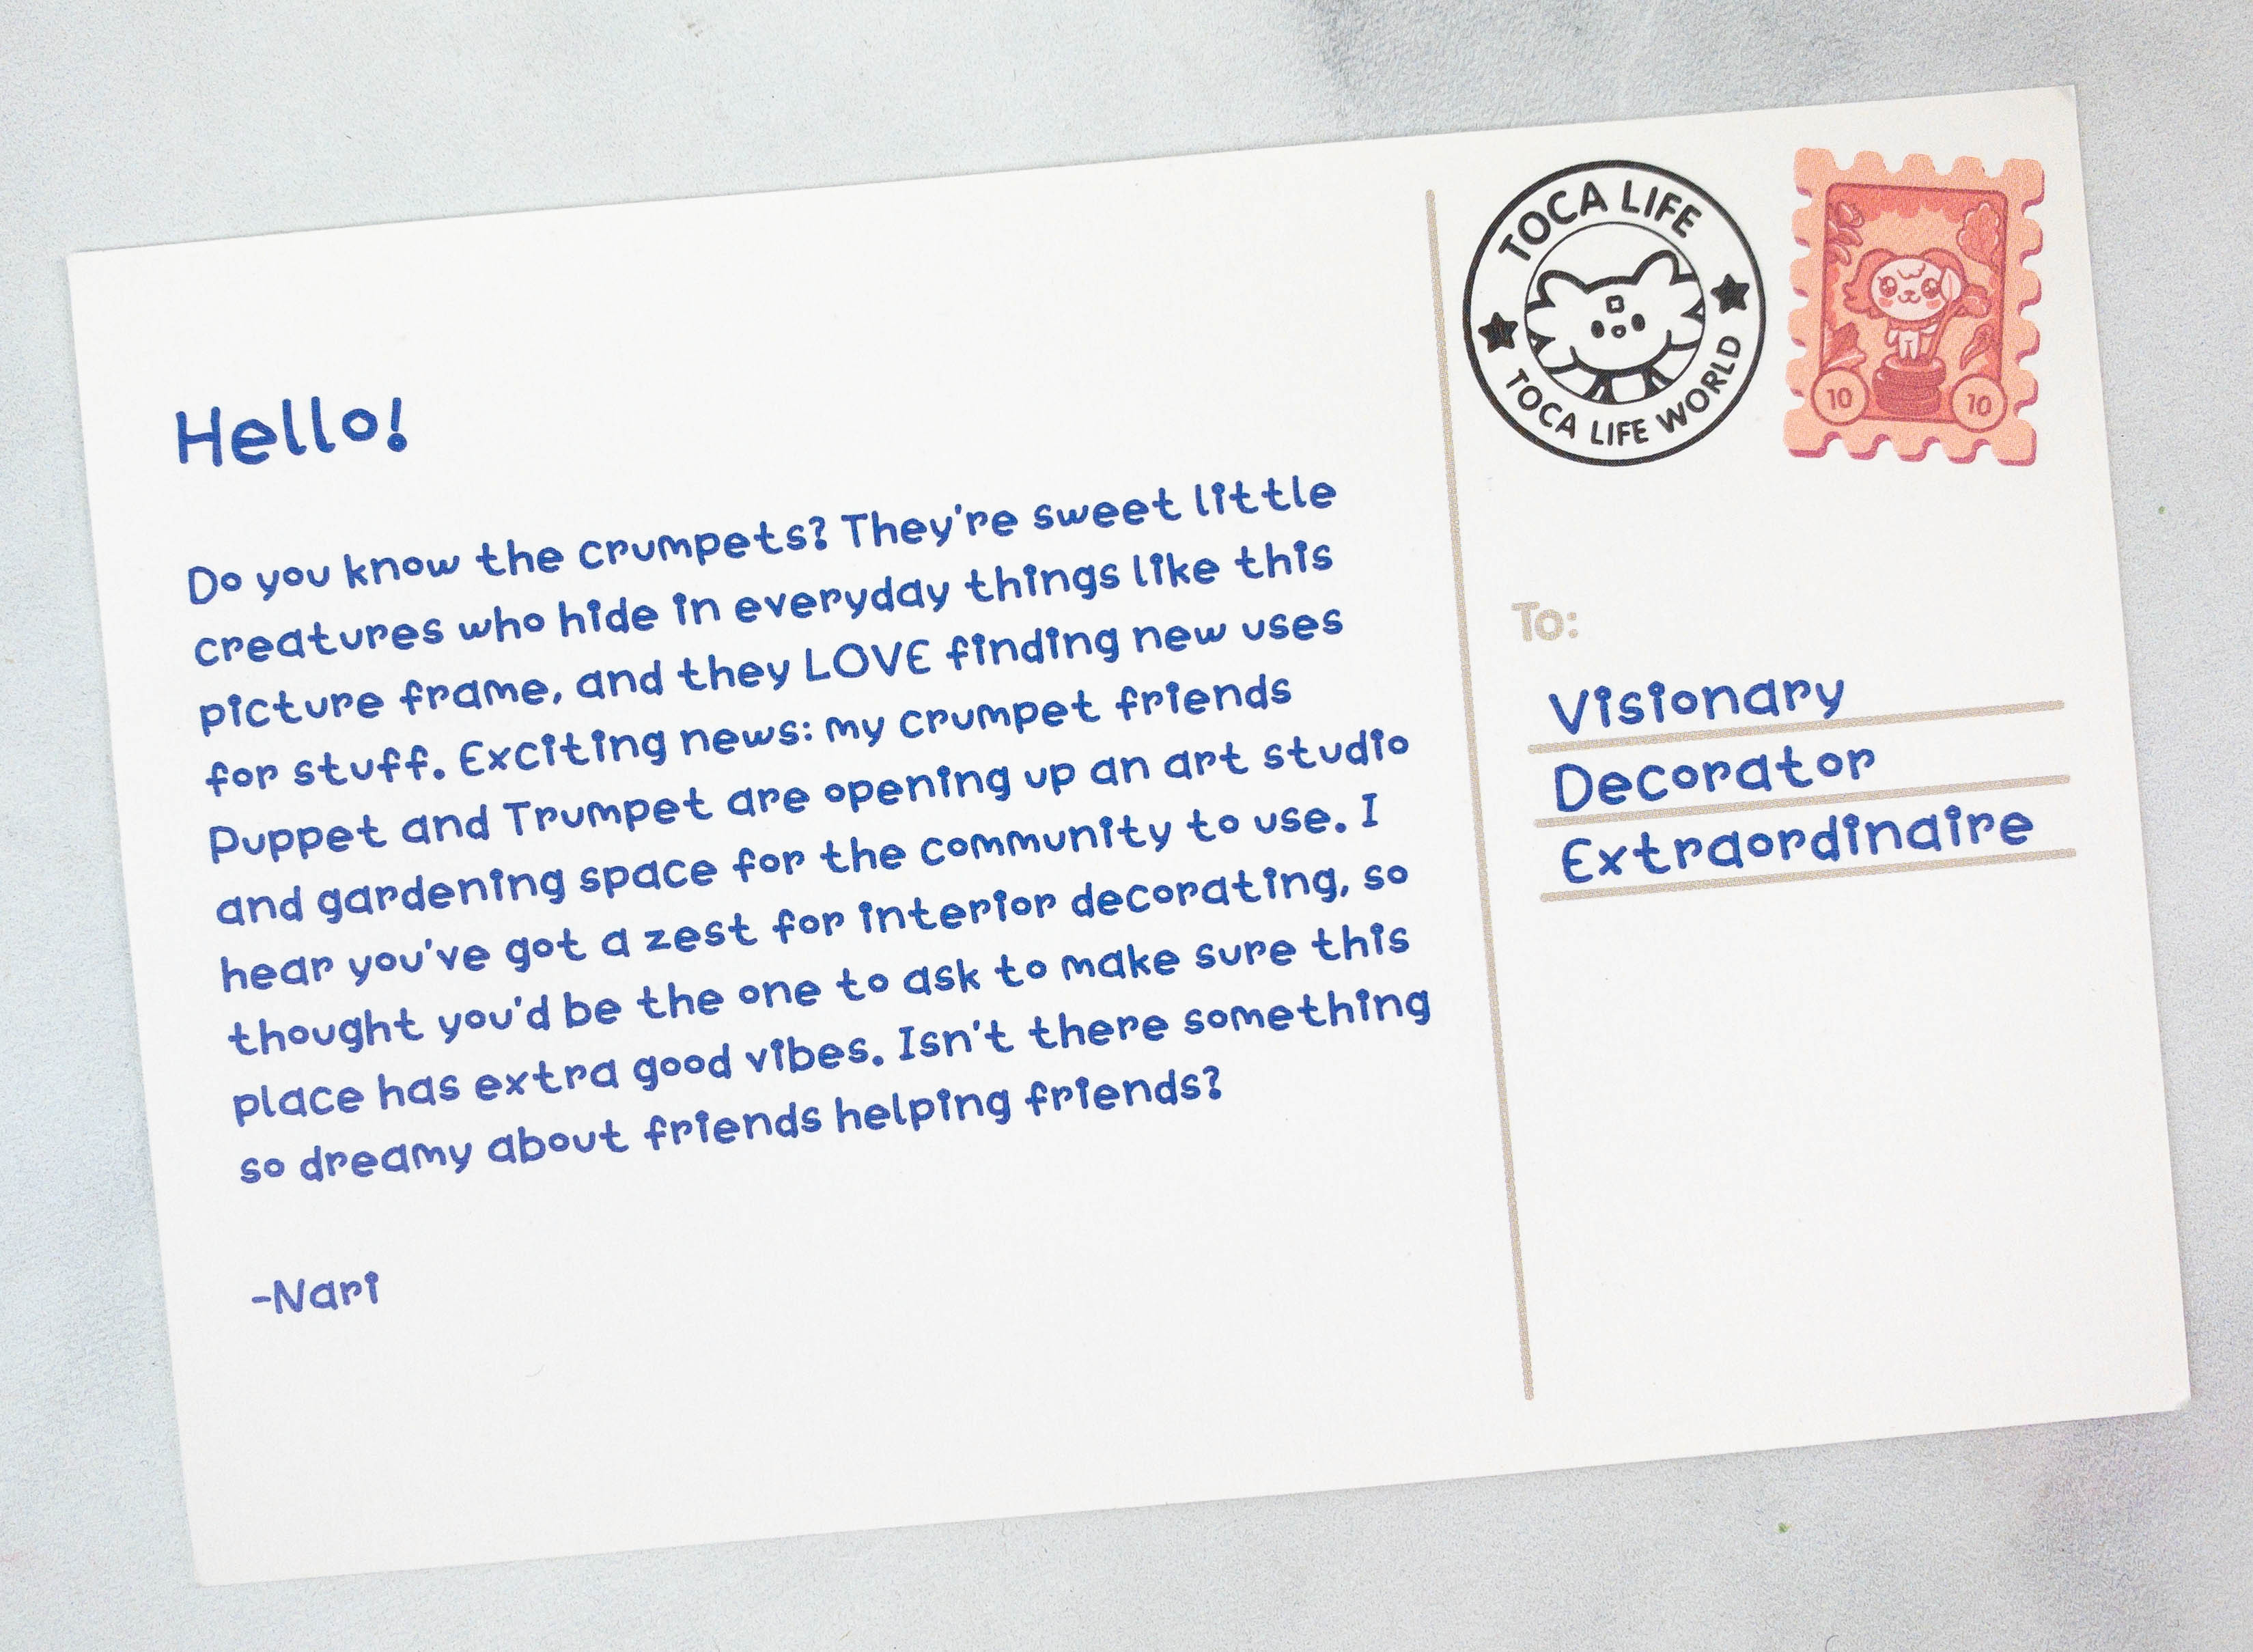 Hello!
Do you know the crumpets? They're sweet little
creatures who hide in everyday things like this
picture frame, and they LOVE finding new uses
for stuff. Exciting news: my crumpet friends
Puppet and Trumpet are opening up an art studio
and gardening space for the community to use. I
hear you've got a zest for interior decorating, so
thought you'd be the one to ask to make sure this
place has extra good vibes. Isn't there something
so dreamy about friends helping friends?
-Nari
TOCA LIFE
TOCA LIFE WORLD
10 10
To:
Visionary
Decorator
Extraordinaire